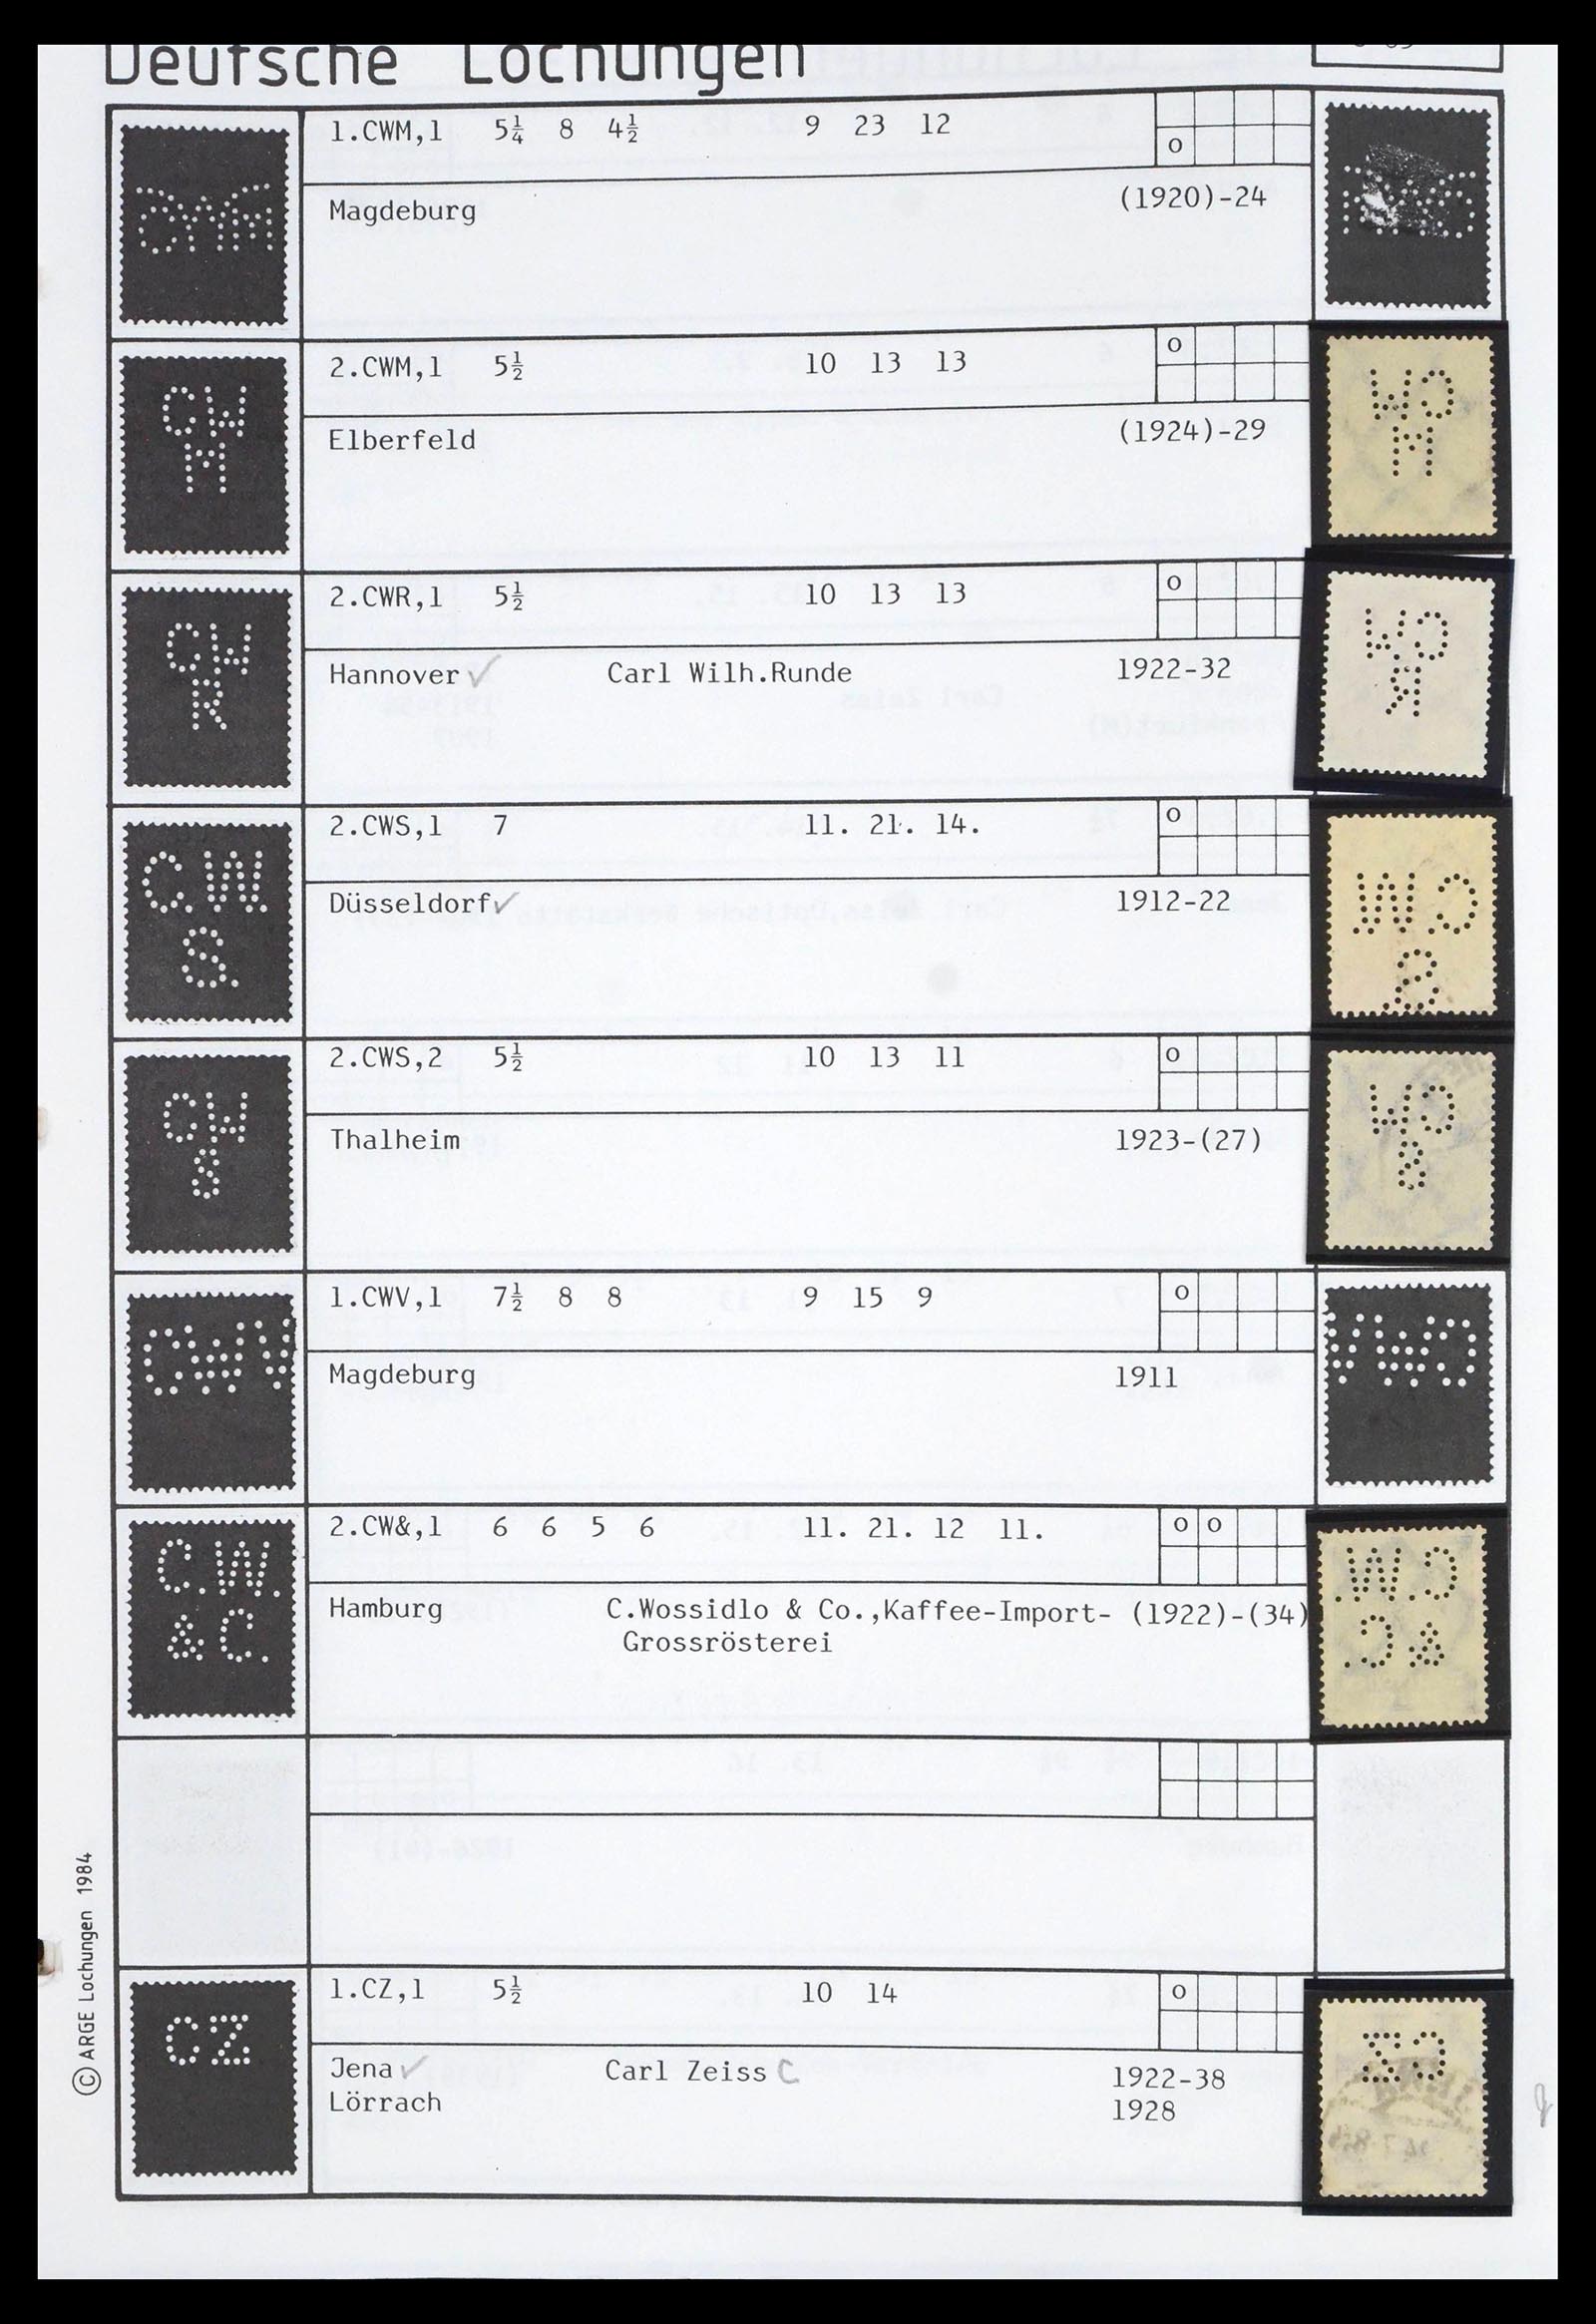 Deutsche Lochungen
1.CWM,1 5¼ 8 4½ 9 23 12 o
Magdeburg (1920)-24
CWM
2.CWM,1 5½ 10 13 13 o
Elberfeld (1924)-29
CW
M
2.CWR,1 5½ 10 13 13 o
Hannover ✓ Carl Wilh.Runde 1922-32
CW
R
2.CWS,1 7 11. 21. 14. o
Düsseldorf ✓ 1912-22
C.W.
S.
2.CWS,2 5½ 10 13 11 o
Thalheim 1923-(27)
CW
S
1.CWV,1 7½ 8 8 9 15 9 o
Magdeburg 1911
CWV
2.CW&,1 6 6 5 6 11. 21. 12 11. o o
Hamburg C.Wossidlo & Co.,Kaffee-Import- (1922)-(34)
Grossrösterei
C.W.
&C.
1.CZ,1 5½ 10 14 o
Jena ✓ Carl Zeiss C 1922-38
Lörrach 1928
CZ
© ARGE Lochungen 1984